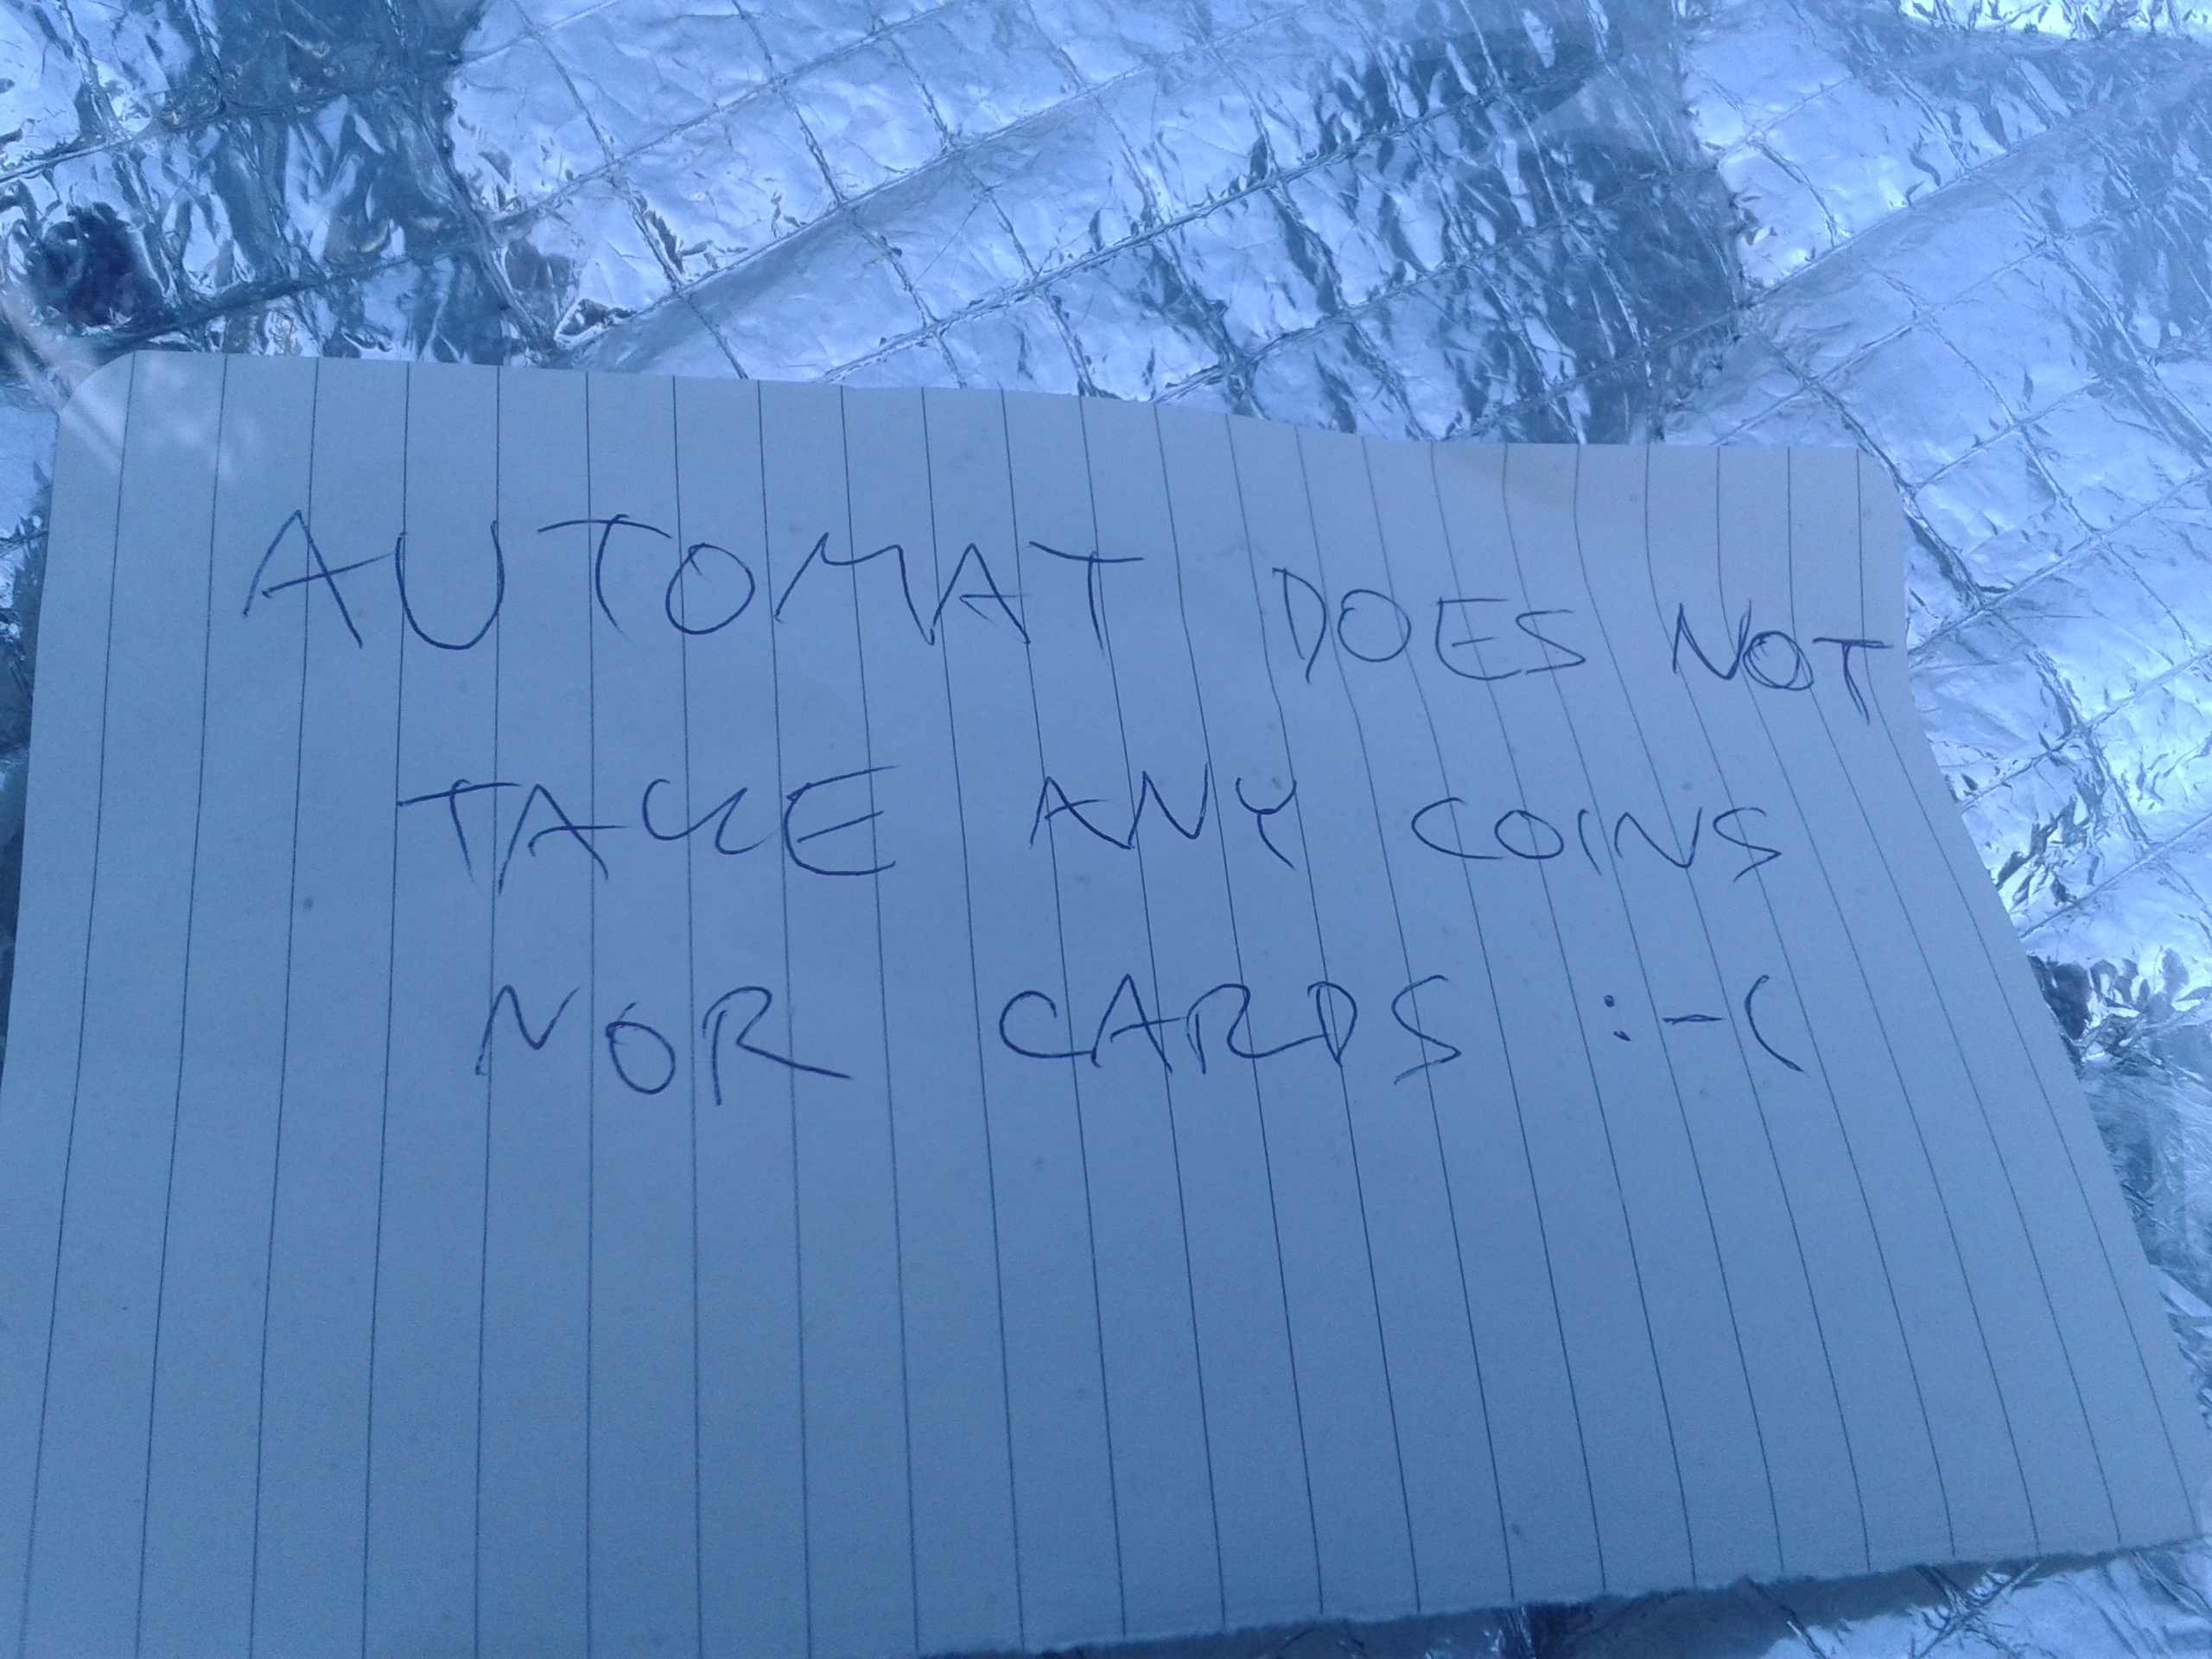 AUTOMAT DOES NOT
TAKE ANY COINS
NOR CARDS :-(